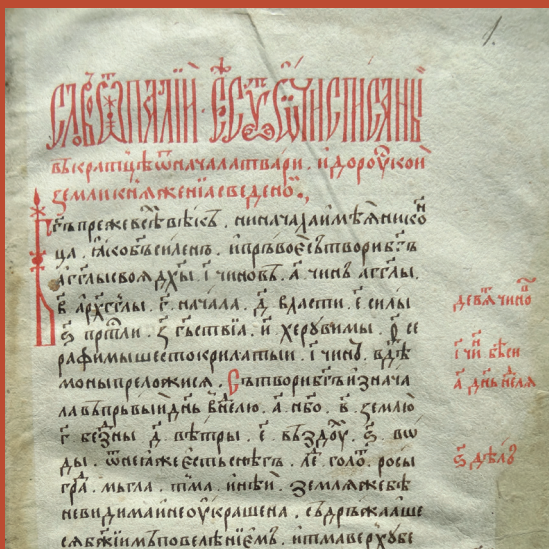 1.
въкратцѣ ѿначалатвари. идороуⷭ҇кой
землиикнѧженіасведено.,
бг҃ъпрежевсѣⷯ вѣкъ. ниначалаимѣѧниконⸯ
ца. ꙗкобъсиленъ. ипръвоесътворибг҃ъ
агг҃лысвоѧдх҃ы. і҃ чиновъ. а҃ чинъ агг҃лы.
в҃ арⷯагг҃лы. г҃ начала. д҃ власти. е҃ силы
ѕ҃ прⷭ҇тли. з҃ гⷭ҇ьствїа. и҃ херувимы. ѳ҃ се
рафимышестокрилатыи. і҃ чинъ. вдѣ
моныпреложисѧ. Сътворибг҃ъизнача
лавъпръвыидн҃ь внⷣелю. а҃ нб҃о. в҃ землю
г҃ бездны д҃ вѣтры. е҃ въздоуⷯ. ѕ҃ во
ды. ѿнегажеестьснѣгъ. леⷣ. голоⷮ. росы
граⷣ. мъгла. тма. инѣи. землѧжебѣ
невидимаинеоукрашена. съдръжааше
сѧбж҃іимъповелѣнїемъ. итмаверхубе
девѧⷮ чиноⷡ
і҃ чиⷩ бѣси
а҃ дн҃ь неⷣлѧ
ѕ҃ дѣлъ